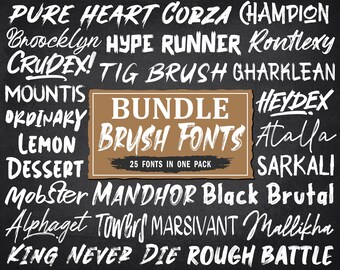 PURE HEART CORZA CHAMPION
Broocklyn HYPE RUNNER Rontlexy
CRUDEX! TIG BRUSH GHARKLEAN
MOUNTIS BUNDLE HEYDEX
ORDINARY BRUSH FONTS Atalla
LEMON 25 FONTS IN ONE PACK
DESSERT SARKALI
Mobster MANDHOR Black Brutal
Alphaget TOWBRS MARSIVANT Mallikha
KING NEVER DIE ROUGH BATTLE